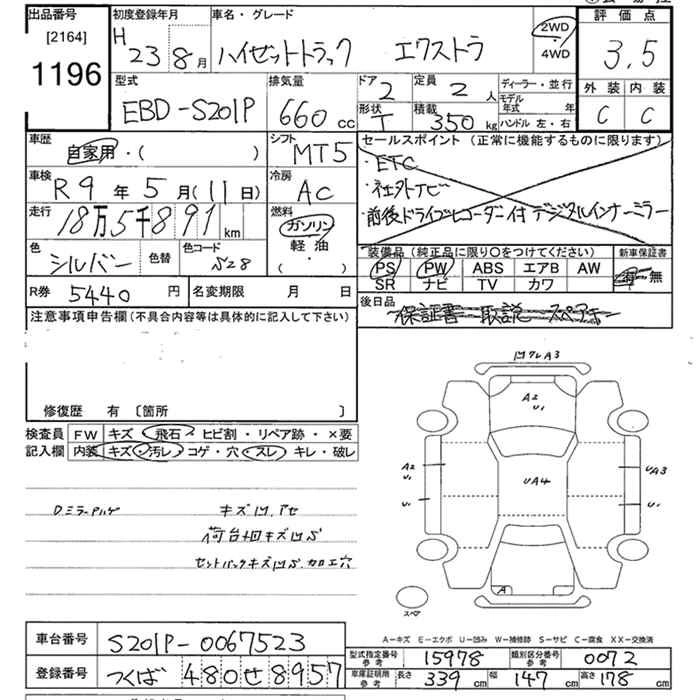 出品番号
[2164]
1196
初度登録年月
H 23 8月
車名・グレード
ハイゼットトラック エクストラ
2WD
・
4WD
評価点
3.5
外装 内装
C C
型式
EBD-S201P
排気量
660 cc
ドア
2
定員
2 人
形状
T
積載
350 kg
ディーラー・並行
モデル年式 年
ハンドル 左・右
車歴
自家用・( )
シフト
MT5
車検
R9年5月(11日)
冷房
AC
走行
18万5千891 km
燃料
ガソリン
軽油
( )
色
シルバー
色替
色コード
S28
セールスポイント(正常に機能するものに限ります)
・ETC
・社外ナビ
・前後ドライブレコーダー付 デジタルインナーミラー
装備品(純正品に限り○をつけてください)
PS PW ABS エアB AW
SR ナビ TV カワ
新車保証書
有・無
R券 5440 円
名変期限 月 日
後日品
保証書 取説 スペアキー
注意事項申告欄(不具合内容等は具体的に記入して下さい)
修復歴 有 〔箇所 〕
検査員
記入欄
FW キズ・飛石・ヒビ割・リペア跡・×要
内装 キズ・汚レ・コゲ・穴・スレ・キレ・破レ
D.ミラーハゲ
キズ凹.アセ
荷台回キズ凹S
セットバックキズ凹S.加工穴
凹クレA3
A2
U1
A2
U1
U1
UA4
UA3
U1
A
スペア
A-キズ E-エクボ U-凹み W-補修跡 S-サビ C-腐食 XX-交換済
車台番号
S201P-0067523
登録番号
つくば 480せ8957
型式指定番号
参考
15978
類別区分番号
参考
0072
車庫証明用
参考
長さ 339 cm 幅 147 cm 高さ 178 cm